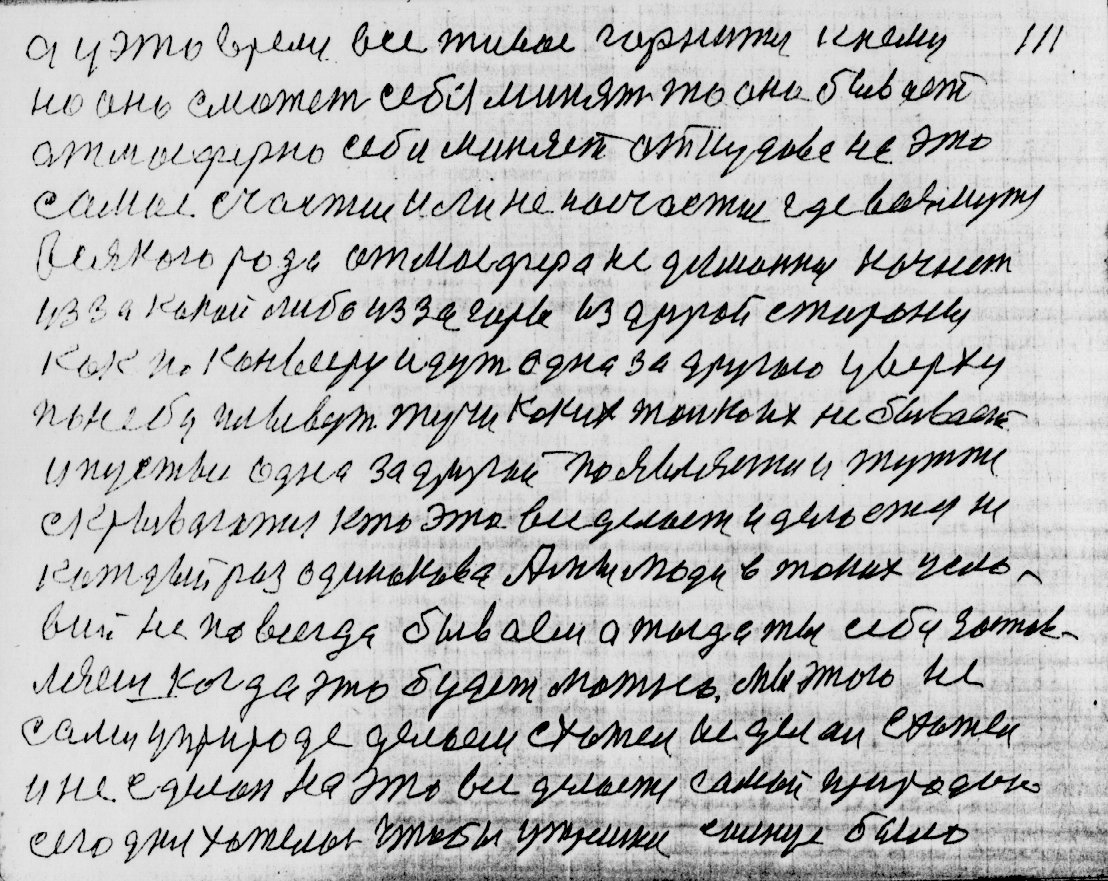 а у это время все живое горнитя к нему 111
но оно сможет себя минят то оно бывает
атмосферно себя миняет откудова не это
самое счастия или не насчастия где возмутя
Всякого рода атмосфера не дыманна начнет
из за какой либо из за горы из другой стороны
как по конвееру идут одна за другою у верху
по неба плывут тучи каких то никоих не бывает
и пустые одна за другой появляятия и тутже
скрываютия кто это все делает и делаетия не
каждый раз одинакова А мы люди в таких усло-
вий не по всегда бываем а тогда ты себя застав-
ляеш когда это будет можно. мы этого не
сами у природе делаем сможем не делаи сможем
и не сделан на это все делаетя самой природою
сегодня хотелос чтобы утрички сонце было